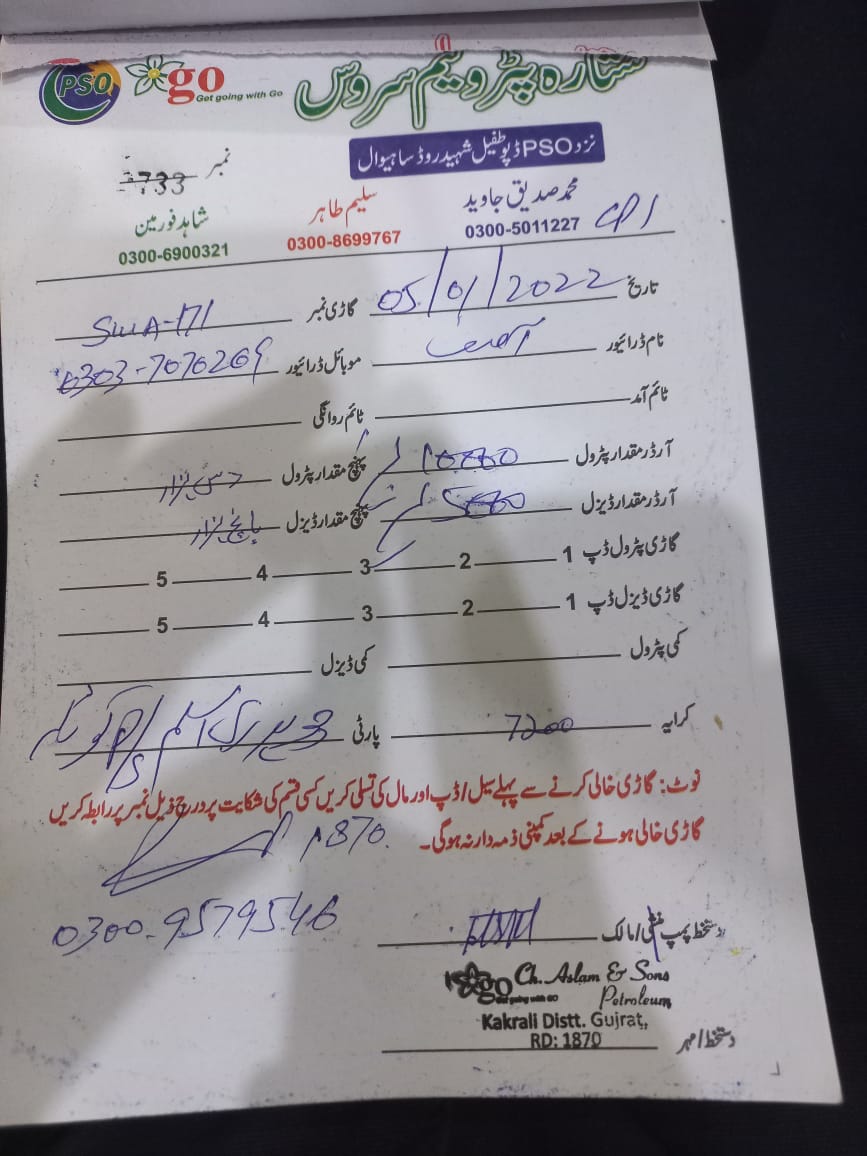 PSO go Get going with Go ستارہ پٹرولیم سروس
نزد PSO ڈپو طفیل شہید روڈ ساہیوال
نمبر 733
محمد صدیق جاوید سلیم طاہر شاہد فورمین
0300-5011227 0300-8699767 0300-6900321
تاریخ 05/01/2022 گاڑی نمبر
نام ڈرائیور آصف موبائل ڈرائیور 0303-7070269
ٹائم آمد ٹائم روانگی
آرڈر مقدار پٹرول 10000 پہنچ مقدار پٹرول دس ہزار
آرڈر مقدار ڈیزل 5000 پہنچ مقدار ڈیزل پانچ ہزار
گاڑی پٹرول ڈپ 1 2 3 4 5
گاڑی ڈیزل ڈپ 1 2 3 4 5
کمی پٹرول کمی ڈیزل
کرایہ 7200 پارٹی
نوٹ: گاڑی خالی کرنے سے پہلے سیل/ڈپ اور مال کی تسلی کریں کسی قسم کی شکایت پر درج ذیل نمبر پر رابطہ کریں
گاڑی خالی ہونے کے بعد کمپنی ذمہ دار نہ ہوگی۔
1870
0300-9579546
دستخط پمپ منشی/مالک
go Ch. Aslam & Sons
Petroleum
Kakrali Distt. Gujrat,
RD: 1870
دستخط/مہر